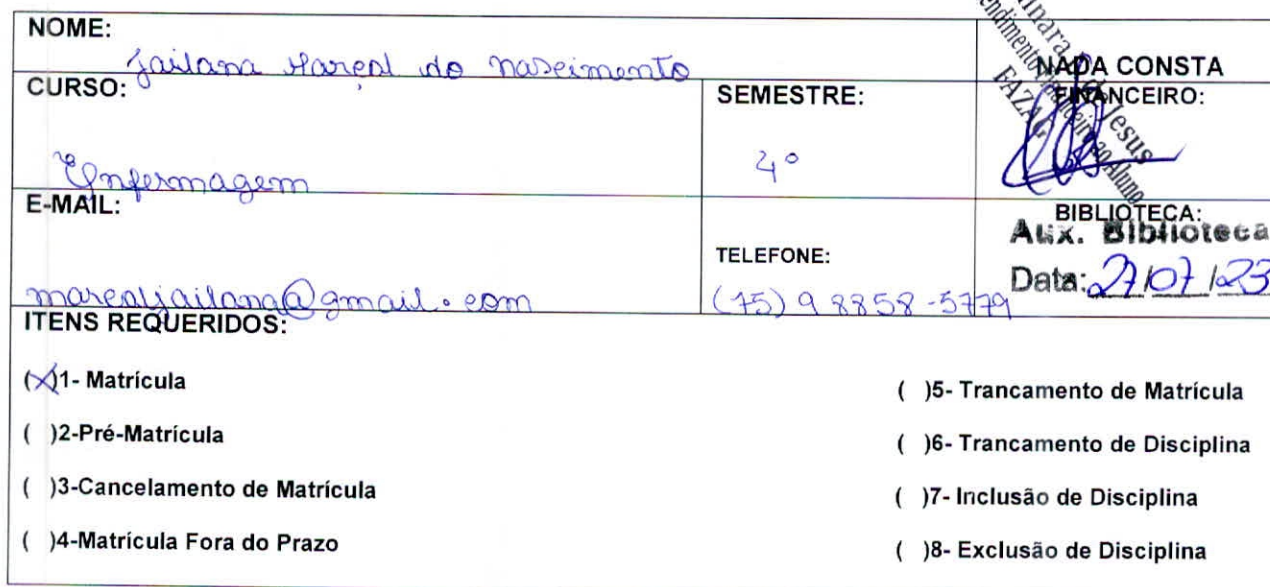 NOME:
Jailana Marçal do nascimento
CURSO:
Enfermagem
SEMESTRE:
4º
NADA CONSTA
FINANCEIRO:
Jesus
FAZAG
E-MAIL:
marcaljailana@gmail.com
TELEFONE:
(75) 9 8858-5779
BIBLIOTECA:
Aux. Biblioteca
Data: 27/07/23
ITENS REQUERIDOS:
(X)1- Matrícula
( )2-Pré-Matrícula
( )3-Cancelamento de Matrícula
( )4-Matrícula Fora do Prazo
( )5- Trancamento de Matrícula
( )6- Trancamento de Disciplina
( )7- Inclusão de Disciplina
( )8- Exclusão de Disciplina